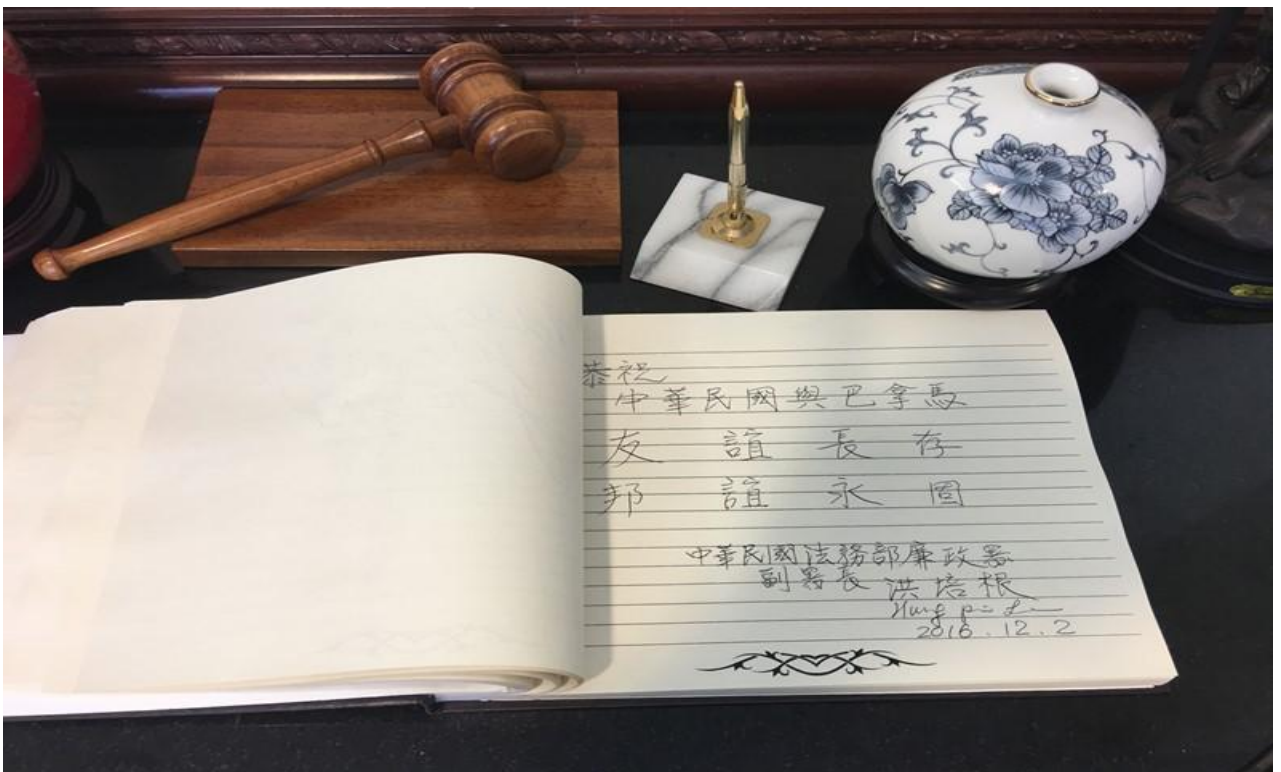 恭祝
中華民國與巴拿馬
友誼長存
邦誼永固
中華民國法務部廉政署
副署長 洪培根
2016.12.2